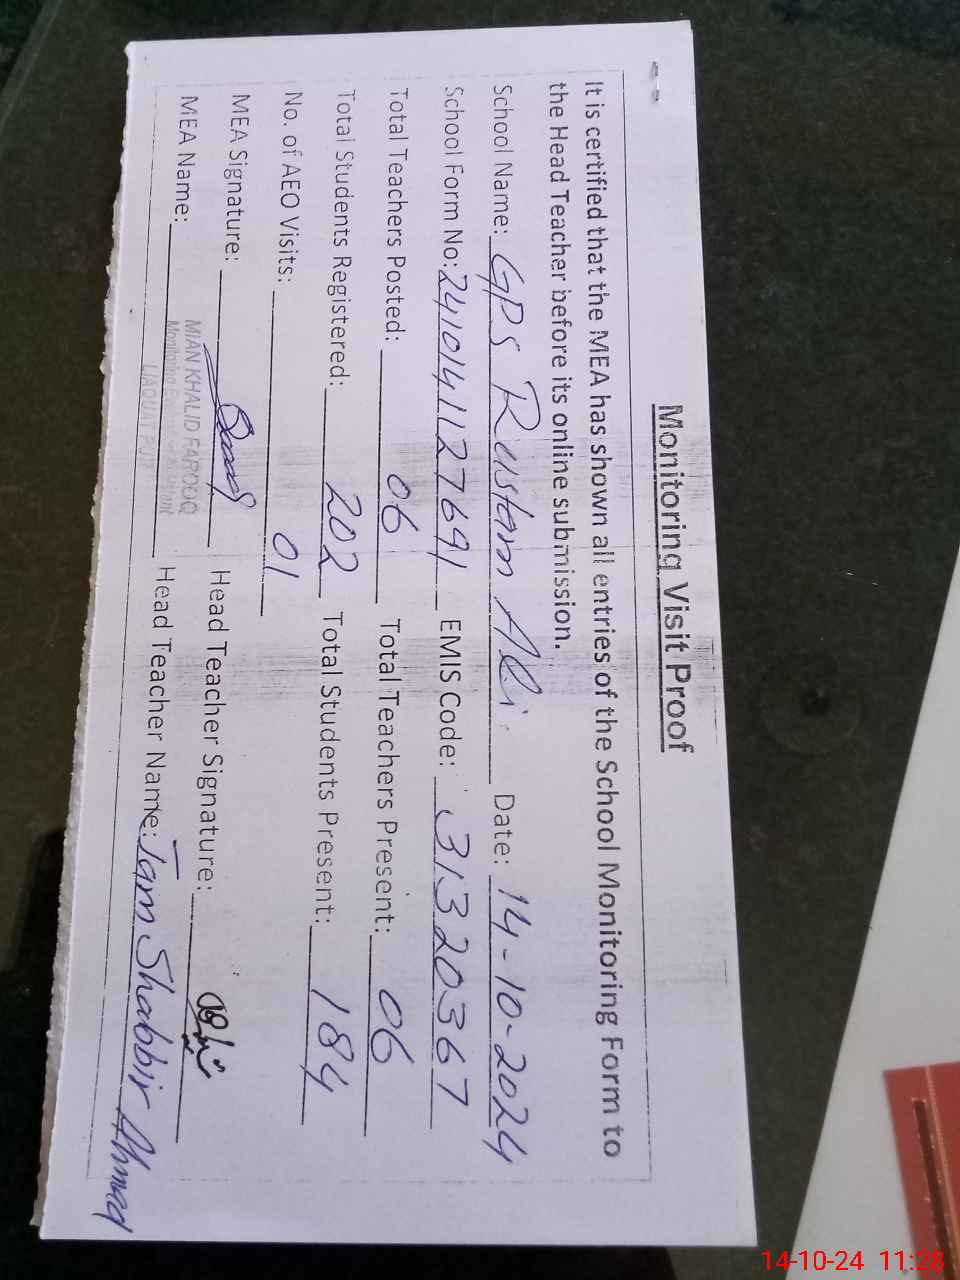 Monitoring Visit Proof
It is certified that the MEA has shown all entries of the School Monitoring Form to
the Head Teacher before its online submission.
School Name: GPS Rustam Ali Date: 14-10-2024
School Form No: 24101411277691 EMIS Code: 31320367
Total Teachers Posted: 06 Total Teachers Present: 06
Total Students Registered: 202 Total Students Present: 184
No. of AEO Visits: 01
MEA Signature: Head Teacher Signature:
MEA Name: MIAN KHALID FAROOQ Head Teacher Name: Jam Shabbir Ahmad
Monitoring
LIAQUAT PUR
14-10-24 11:28